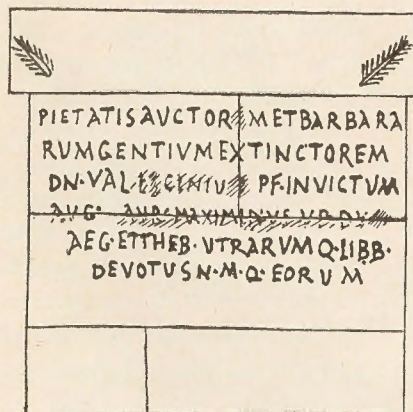 PIETATISAVCTOR METBARBARA
RUMGENTIVMEXTINCTOREM
DN·VAL PF·INVICTUM
AVG·
AEG·ETTHEB·UTRARVMQ·LIBB·
DEVOTUSN·M·Q·EORUM